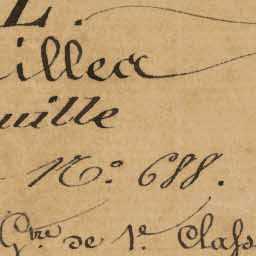 L.
illea
uille
Nº 688.
Gᵗʳᵉ de 1ᵉ Claſs